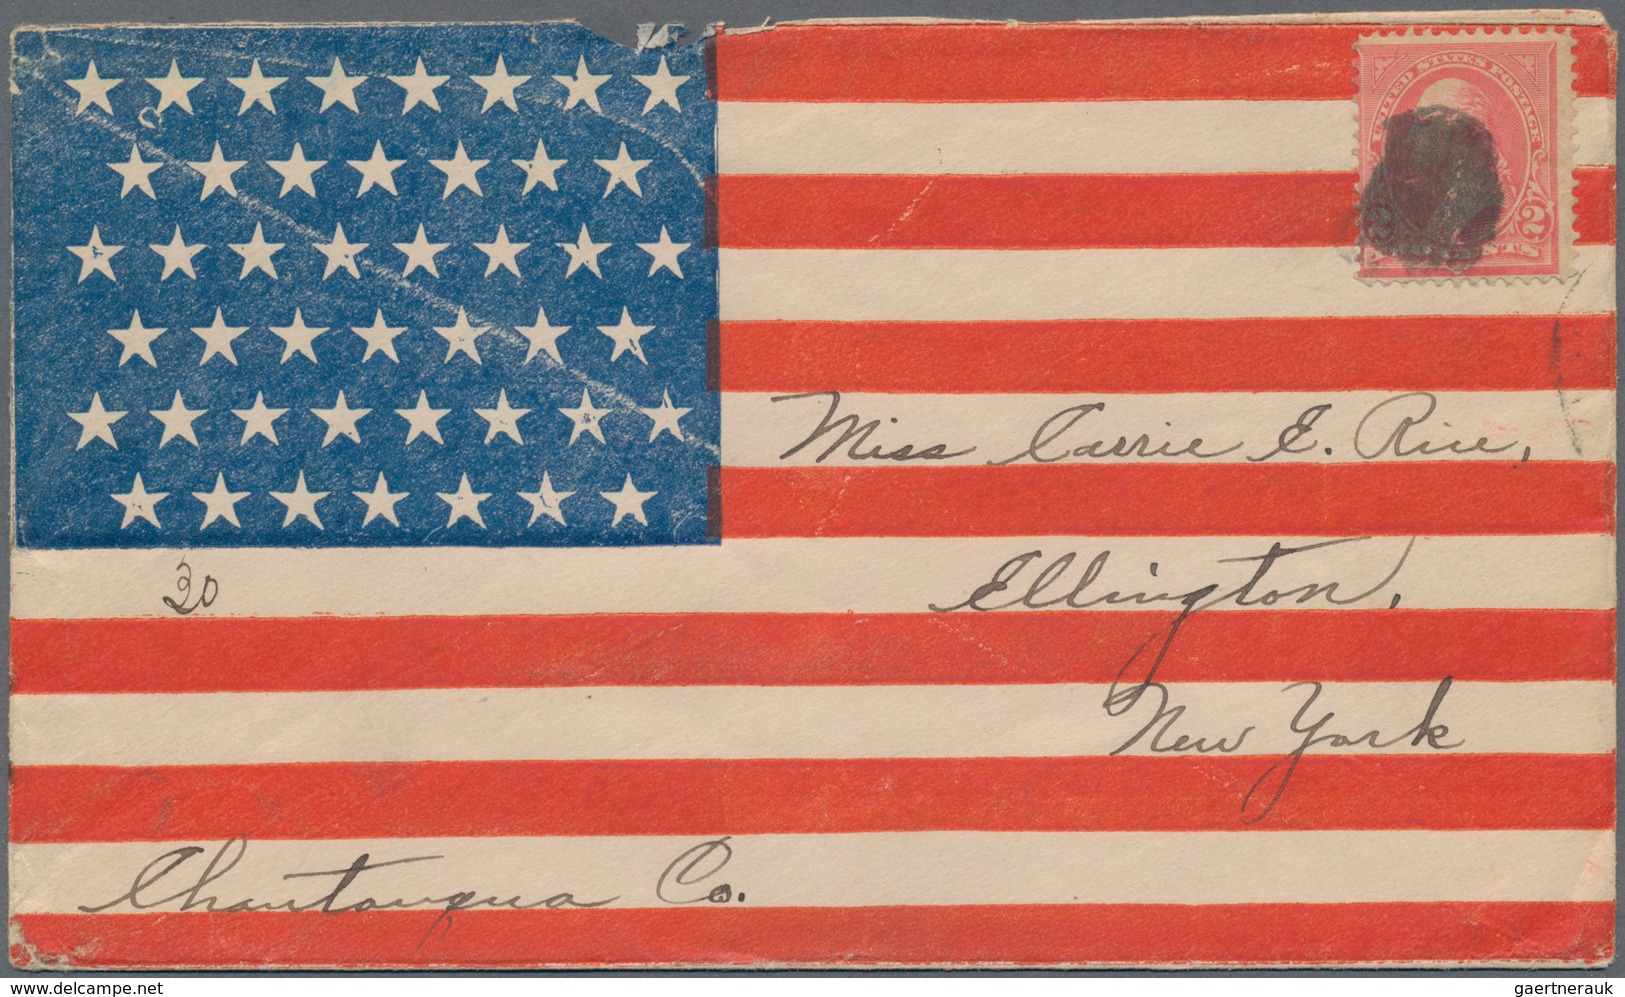 UNITED STATES POSTAGE
2 2
Miss Carrie E. Rice,
Ellington,
30
New York
Chautauqua Co.
www.delcampe.net
gaertnerauk